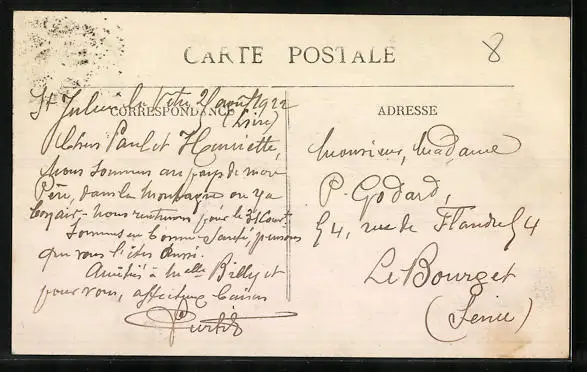 CARTE POSTALE
8
CORRESPONDANCE
ADRESSE
St Julien la Vêtre 21 août 1922
(Loire)
Chers Paul et Henriette,
Nous sommes au pays de mon
Père, dans la montagne où y a
bon air. Nous rentrerons pour le 31 Court.
Sommes en bonne santé, pensons
que vous l'êtes aussi.
Amitiés à Melle Billy et
pour vous, affectueux baisers
Monsieur, Madame
P. Godard,
54, rue de Flandre 54
Le Bourget
(Seine)